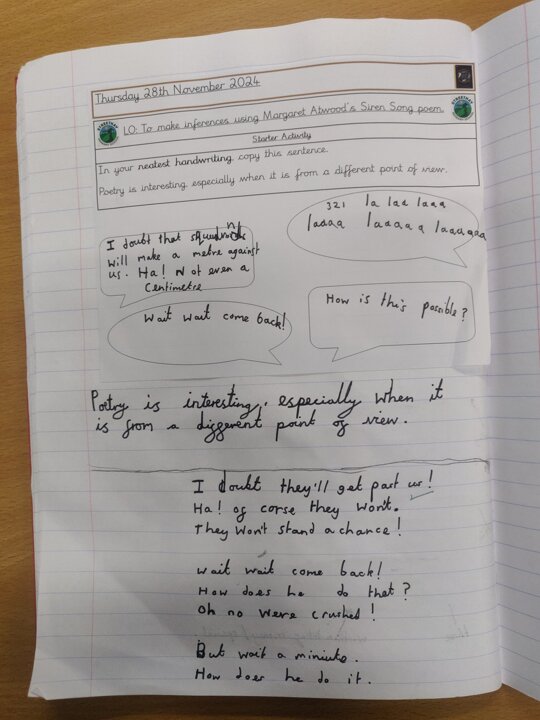 Thursday 28th November 2024
LO: To make inferences using Margaret Atwood's Siren Song poem.
Starter Activity
In your neatest handwriting, copy this sentence.
Poetry is interesting, especially when it is from a different point of view.
321 la laa laaa
laaaa laaaaa laaaaaa
I doubt that squadrons
will make a metre against
us. Ha! Not even a
Centimetre
How is this possible?
Wait wait come back!
Poetry is interesting, especially when it
is from a different point of view.
I doubt they'll get past us!
Ha! of corse they won't.
They Won't stand a chance!
Wait wait come back!
How does he do that?
Oh no were crushed!
But wait a miniute.
How does he do it.